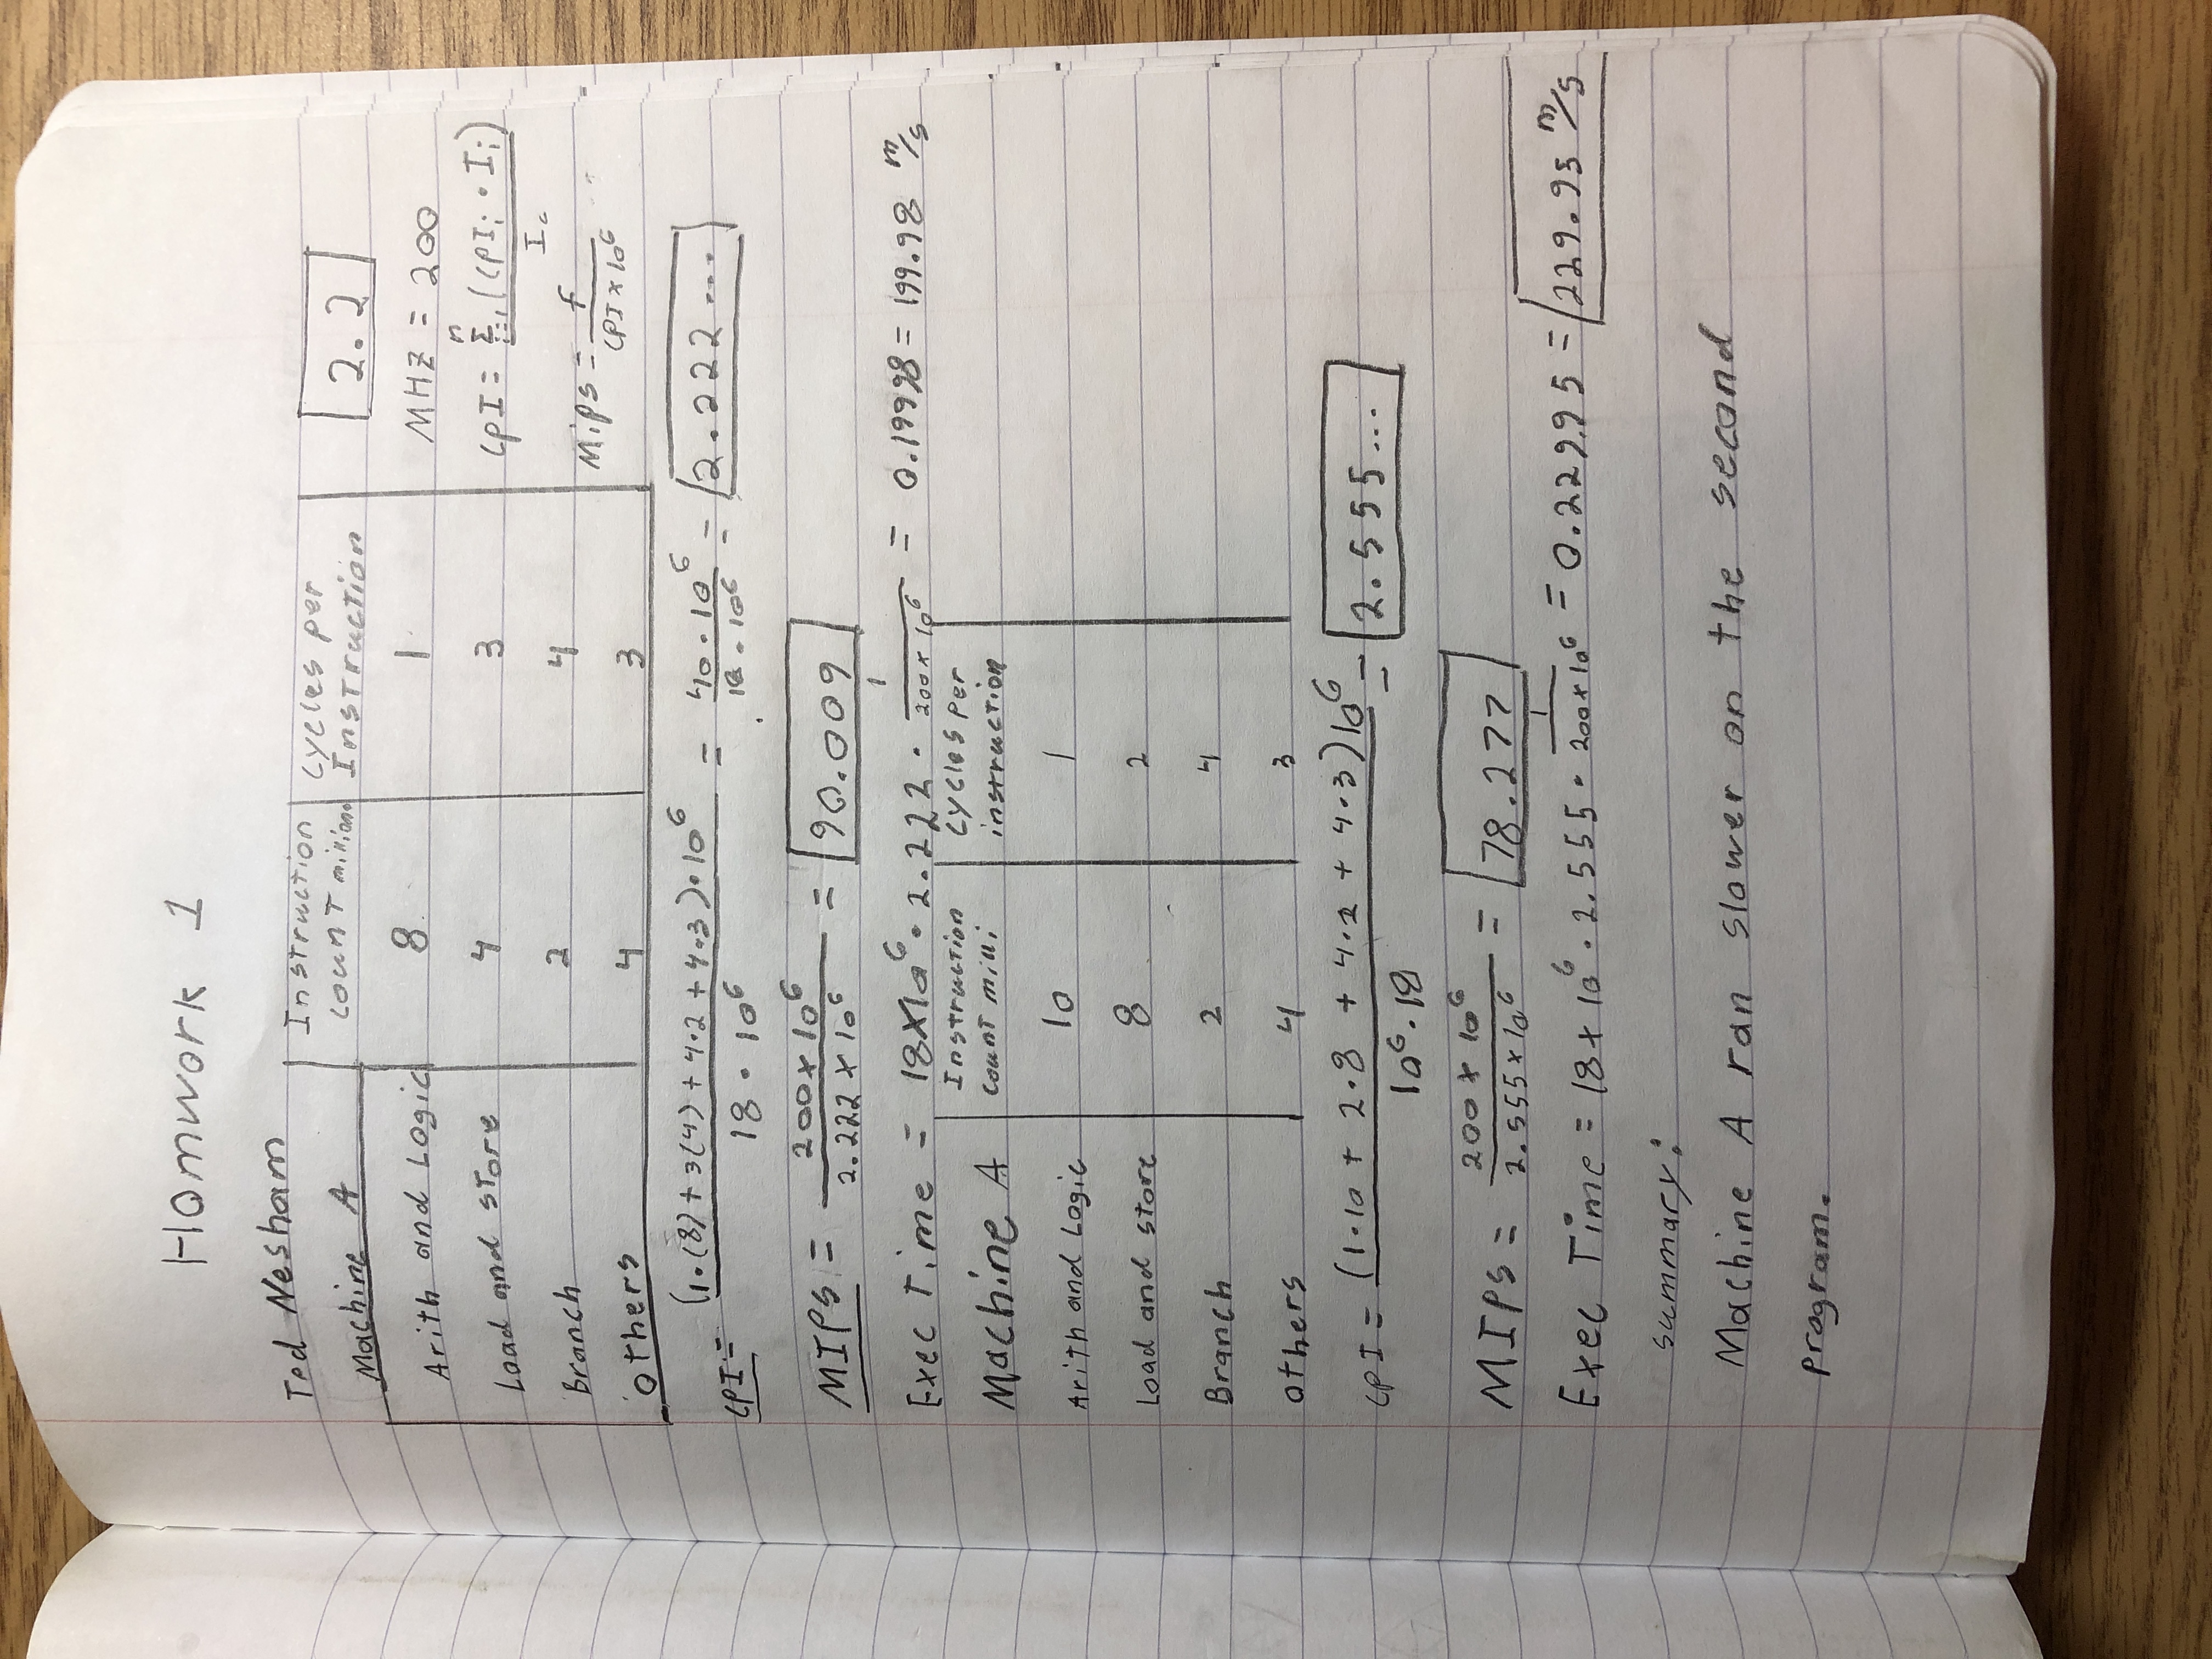 Homwork 1
Ted Nesham
Machine A | Instruction count millions | Cycles per Instruction
Arith and Logic | 8 | 1
Load and store | 4 | 3
Branch | 2 | 4
others | 4 | 3
2.2
MHZ = 200
CPI = n Σ i=1 (CPI_i · I_i) / I_c
Mips = f / CPI x 10^6
CPI = (1·(8) + 3(4) + 4·2 + 4·3)·10^6 / 18 · 10^6 = 40 · 10^6 / 18 · 10^6 = 2.222...
MIPS = 200 x 10^6 / 2.222 x 10^6 = 90.009
Exec Time = 18x10^6 · 2.222 · 1 / 200 x 10^6 = 0.19998 = 199.98 m/s
Machine A | Instruction count milli | cycles per instruction
Arith and Logic | 10 | 1
Load and store | 8 | 2
Branch | 2 | 4
others | 4 | 3
CPI = (1·10 + 2·8 + 4·2 + 4·3)10^6 / 10^6 · 18 = 2.555...
MIPS = 200 x 10^6 / 2.555 x 10^6 = 78.277
Exec Time = 18 x 10^6 · 2.555 · 1 / 200 x 10^6 = 0.22995 = 229.95 m/s
summary:
Machine A ran slower on the second
program.